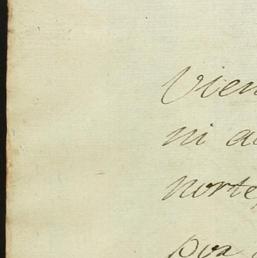 Vien
ni a
norte,
por